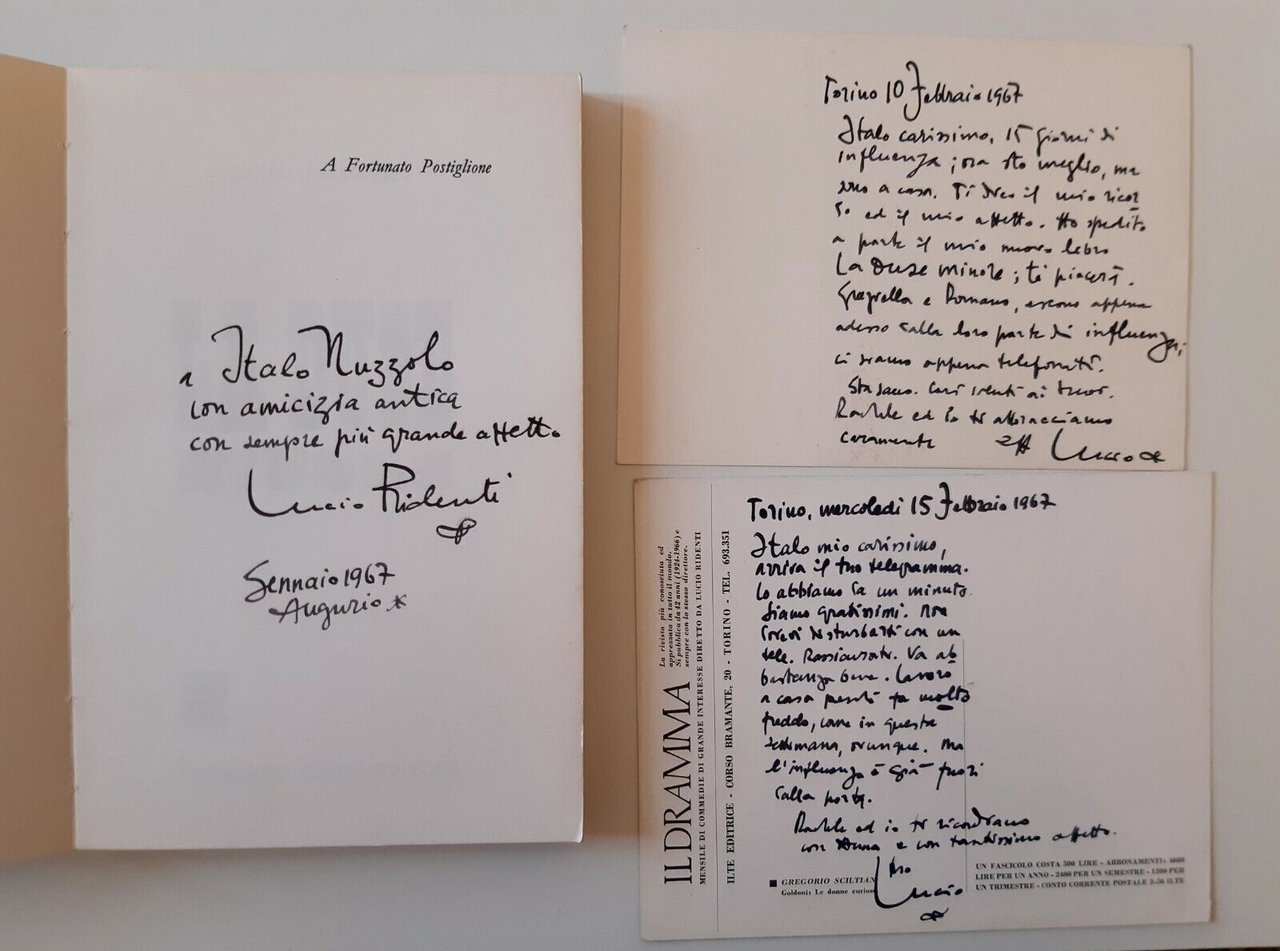 A Fortunato Postiglione
a Italo Nuzzolo
con amicizia antica
con sempre più grande affetto
Lucio Ridenti
Gennaio 1967
Augurio
Torino 10 Febbraio 1967
Italo carissimo, 15 giorni di
influenza; ora sto meglio, ma
sono a casa. Ti dico il mio ricor
do ed il mio affetto. Ho spedito
a parte il mio nuovo libro
La Duse minore; ti piacerà.
e Romano, escono appena
adesso dalla loro parte di influenza;
ci siamo appena telefonati.
Rachele ed io ti abbracciamo
caramente aff Lucio
Torino, mercoledì 15 Febbraio 1967
Italo mio carissimo,
arriva il tuo telegramma.
Lo abbiamo da un minuto.
Siamo gratissimi. Non
disturbarti con un
tele. Rassicurati. Va ab
bastanza bene. Lavoro
a casa perché fa molto
freddo, come in questa
settimana, ovunque. Ma
l'influenza è già fuori
dalla porta.
Rachele ed io ti ricordiamo
con Anna e con tantissimo affetto.
tuo
Lucio
IL DRAMMA
La rivista più conosciuta ed
apprezzata in tutto il mondo.
Si pubblica da 42 anni (1924-1966) e
sempre con lo stesso direttore.
MENSILE DI COMMEDIE DI GRANDE INTERESSE DIRETTO DA LUCIO RIDENTI
ILTE EDITRICE - CORSO BRAMANTE, 20 - TORINO - TEL. 693.351
GREGORIO SCILTIAN
Goldoni: Le donne curiose
UN FASCICOLO COSTA 500 LIRE - ABBONAMENTI: 4600
LIRE PER UN ANNO - 2400 PER UN SEMESTRE - 1300 PER
UN TRIMESTRE - CONTO CORRENTE POSTALE 2/56 ILTE